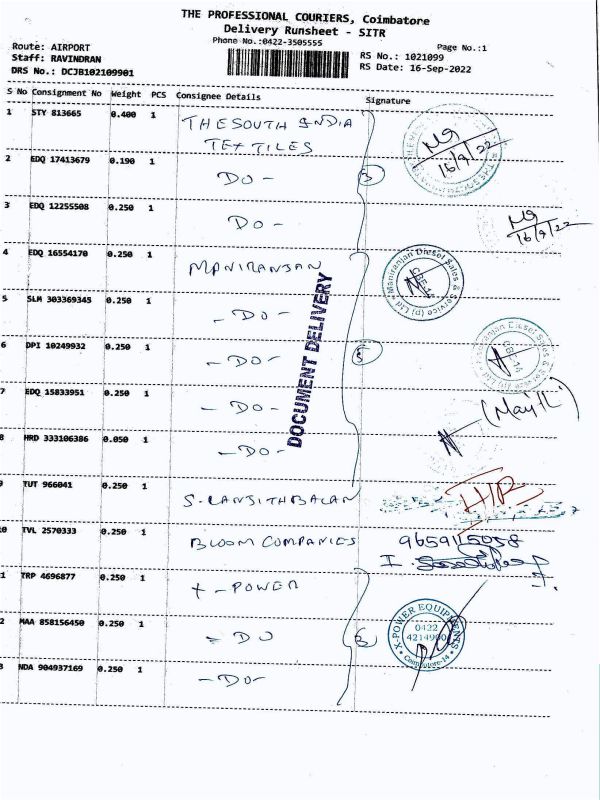 THE PROFESSIONAL COURIERS, Coimbatore
Delivery Runsheet - SITR
Phone No.:0422-3505555
Page No.:1
Route: AIRPORT
Staff: RAVINDRAN
DRS No.: DCJB102109901
RS No.: 1021099
RS Date: 16-Sep-2022
S No Consignment No Weight PCS Consignee Details Signature
1 STY 813665 0.400 1 THE SOUTH INDIA
TEXTILES
16/9/22
2 EDQ 17413679 0.190 1 DO -
3
3 EDQ 12255508 0.250 1 DO -
16/9/22
4 EDQ 16554170 0.250 1 MANIRANJAN
Maniranjan Diesel Sales & Service (p) Ltd
CBE-14
5 SLM 303369345 0.250 1 - DO -
DOCUMENT DELIVERY
6 DPI 10249932 0.250 1 - DO -
5
Maniranjan Diesel Sales &
CBE-14
7 EDQ 15833951 0.250 1 - DO -
8 HRD 333106386 0.050 1 - DO -
9 TUT 966041 0.250 1 S. RANJITHBALAN
10 TVL 2570333 0.250 1 BLOOM COMPANIES
1 TRP 4696877 0.250 1 X - POWER
2 MAA 858156450 0.250 1 - DO
3
X-POWER EQUIPMENTS
0422
4214900
Coimbatore-14
3 NDA 904937169 0.250 1 - DO -